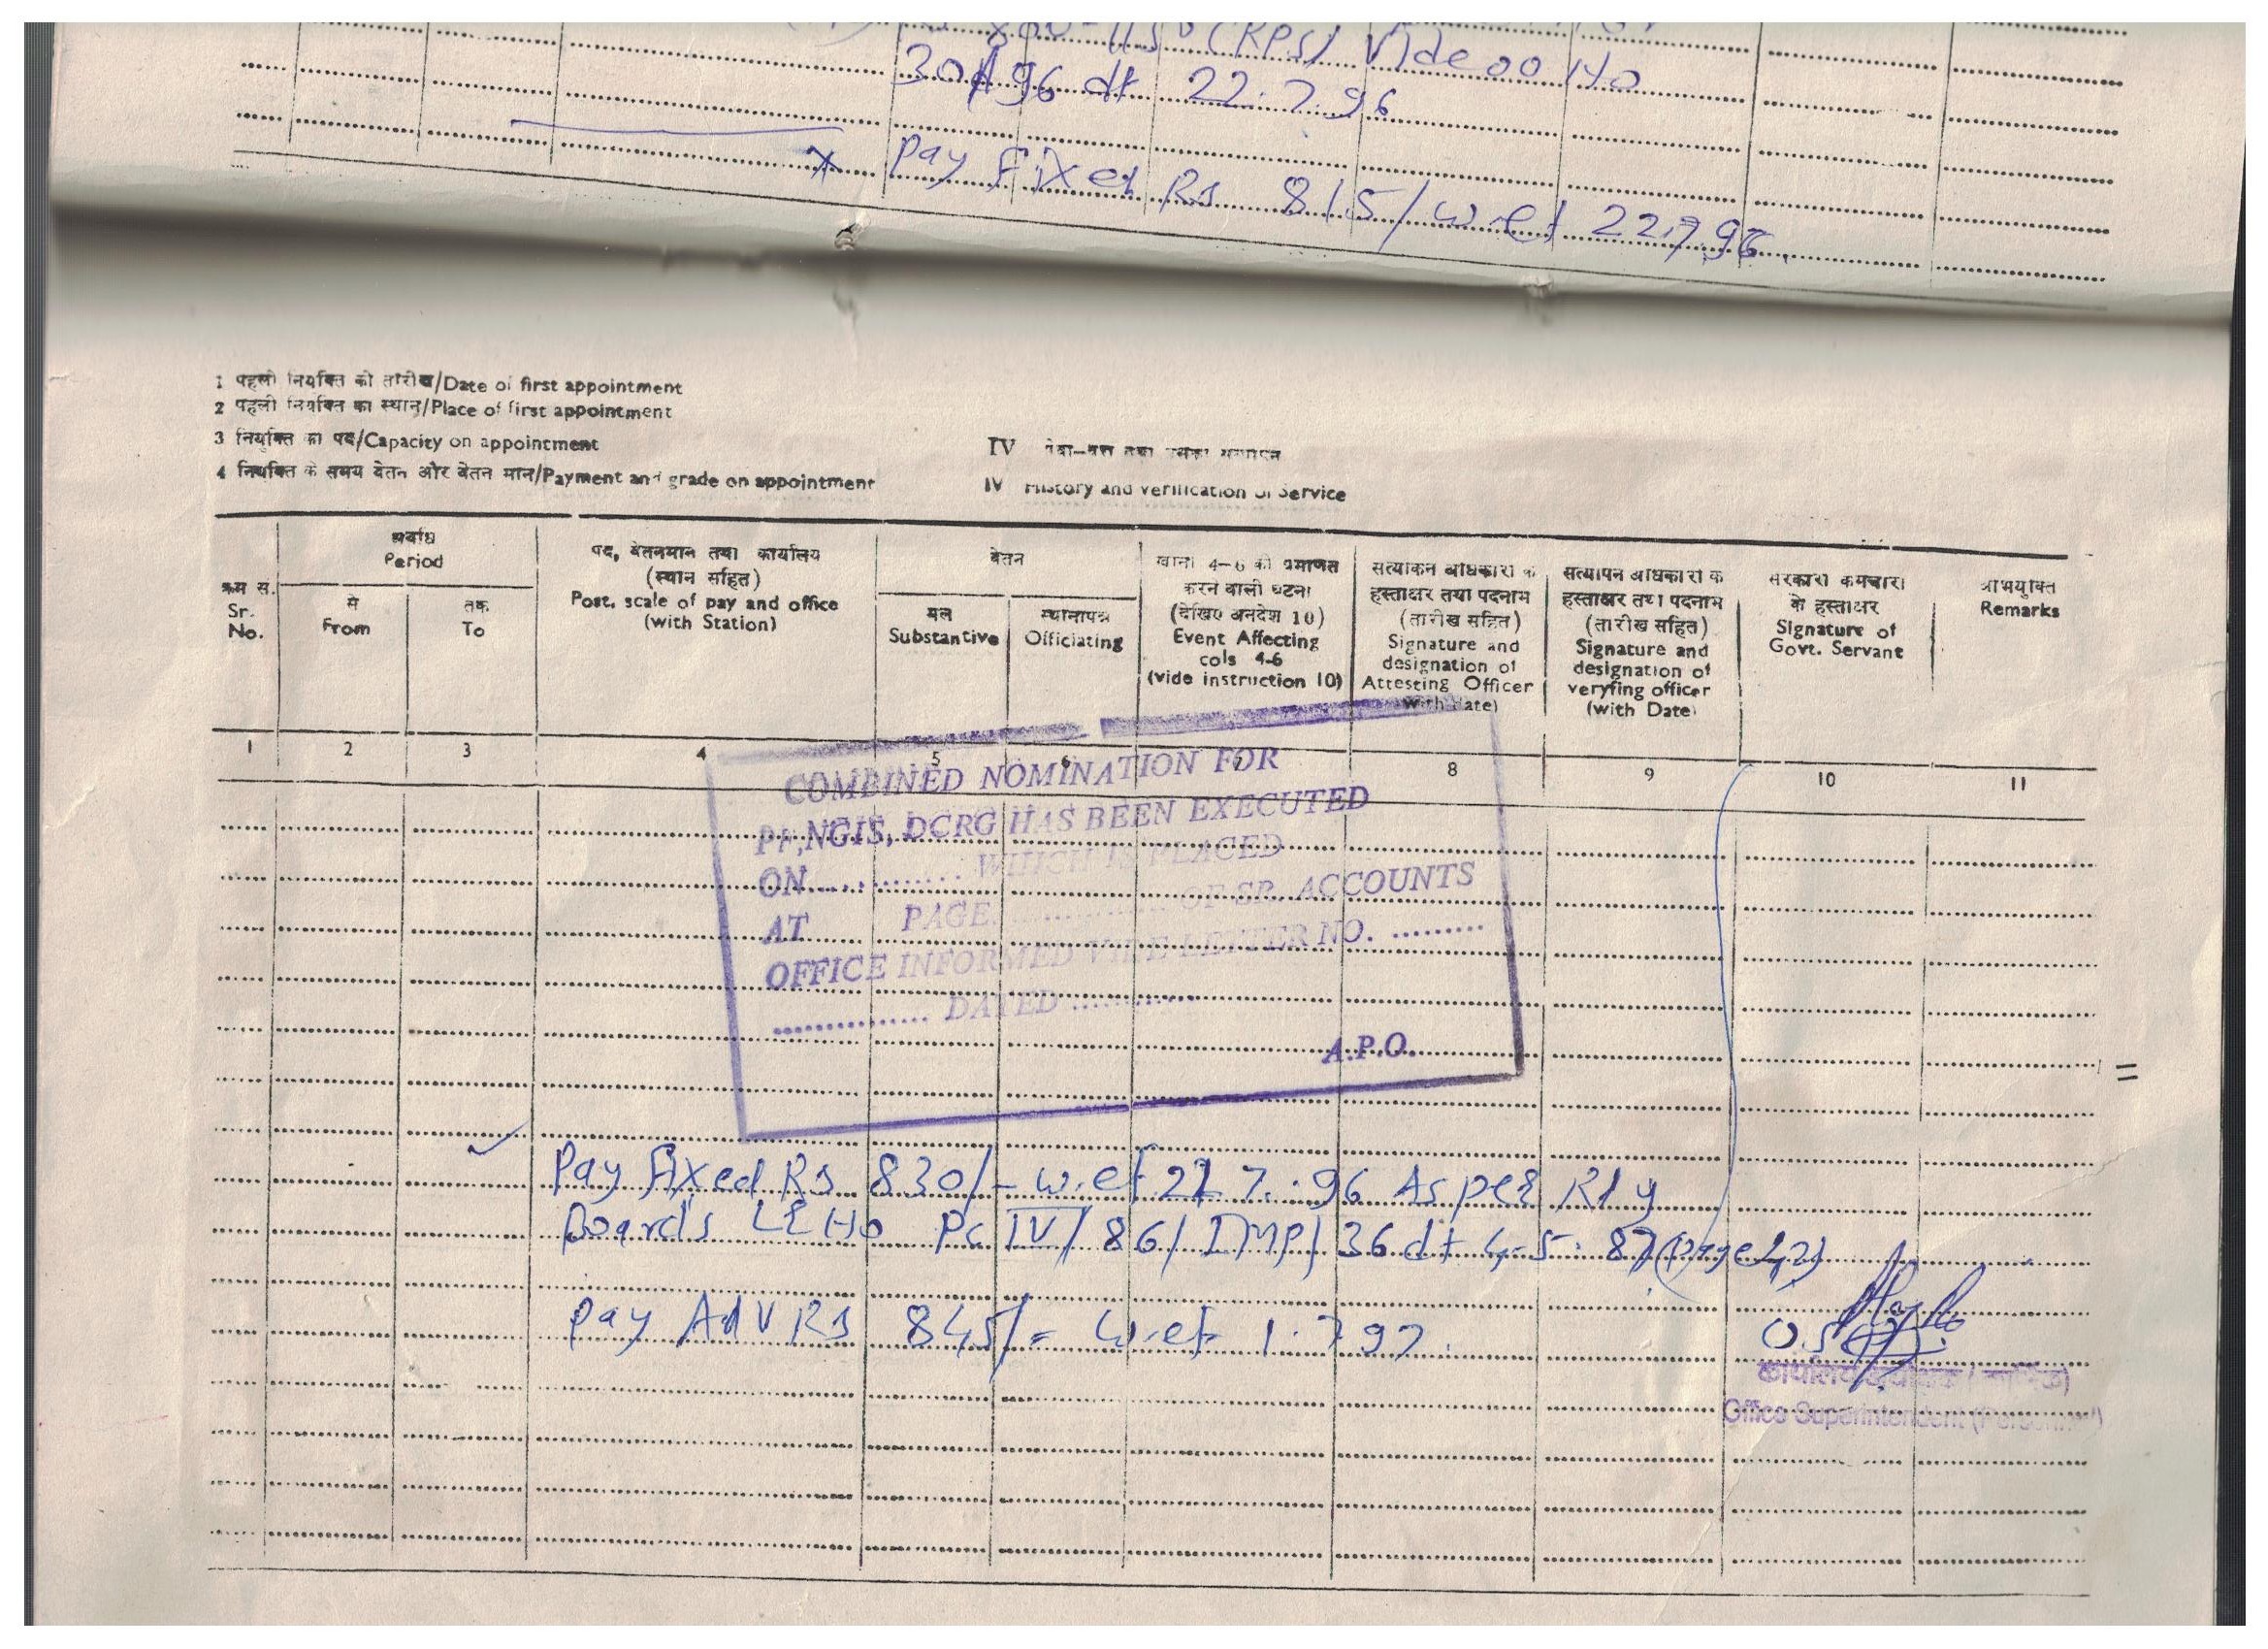 800-1150 (RPS) Vide OO No
30/96 dt 22.7.96
x Pay Fixed Rs 815/ w.ef 22.7.96
1 पहली नियुक्ति की तारीख/Date of first appointment
2 पहली नियुक्ति का स्थान/Place of first appointment
3 नियुक्ति का पद/Capacity on appointment
4 नियुक्ति के समय वेतन और वेतन मान/Payment and grade on appointment
IV
IV History and verification of Service
क्रम सं.
Sr.
No.
अवधि
Period
से
From
तक
To
पद, वेतनमान तथा कार्यालय
(स्थान सहित)
Post, scale of pay and office
(with Station)
वेतन
मूल
Substantive
स्थानापन्न
Officiating
खाना 4-6 को प्रभावित
करने वाली घटना
(देखिए अनुदेश 10)
Event Affecting
cols 4-6
(vide instruction 10)
सत्यांकन अधिकारी के
हस्ताक्षर तथा पदनाम
(तारीख सहित)
Signature and
designation of
Attesting Officer
(with Date)
सत्यापन अधिकारी के
हस्ताक्षर तथा पदनाम
(तारीख सहित)
Signature and
designation of
veryfing officer
(with Date)
सरकारी कर्मचारी
के हस्ताक्षर
Signature of
Govt. Servant
अभियुक्ति
Remarks
1 2 3 4 5 6 7 8 9 10 11
COMBINED NOMINATION FOR
PF, NGIS, DCRG HAS BEEN EXECUTED
ON ............ WHICH IS PLACED
AT PAGE ............ OF SR. ACCOUNTS
OFFICE INFORMED VIDE LETTER NO. .........
............... DATED ............
A.P.O.
Pay Fixed Rs 830/- w.ef 22.7.96 As per Rly
Board's LE No PC IV/86/IMP/36 dt 4-5-87 (Page 42)
Pay Adv Rs 845/= w.ef 1.7.97.
O.S.
कार्यालय अधीक्षक (कार्मिक)
Office Superintendent (Personnel)